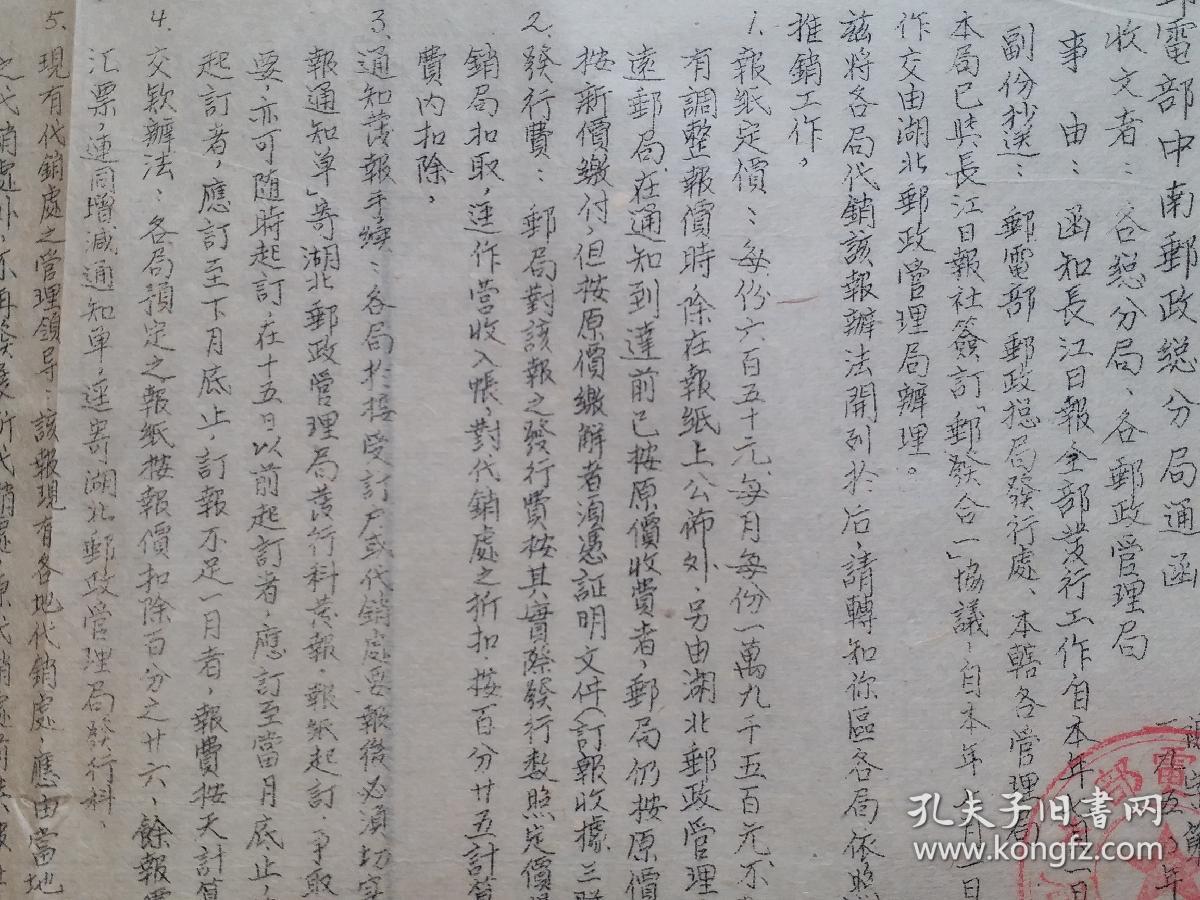 郵電部中南郵政總分局通函
收文者：各總分局、各郵政管理局
事由：函知長江日報全部發行工作自本年 月一日
副份抄送：郵電部郵政總局發行處、本轄各管理局
本局已與長江日報社簽訂「郵發合一」協議，自本年 月一日
作交由湖北郵政管理局辦理。
茲將各局代銷該報辦法開列於后請轉知你區各局依照
推銷工作，
1. 報紙定價：每份六百五十元、每月每份一萬九千五百元、不
有調整報價時，除在報紙上公佈外，另由湖北郵政管理
遠郵局，在通知到達前已按原價收費者，郵局仍按原價
按新價繳付，但按原價繳解者須憑証明文件（訂報收據三聯
2. 發行費：郵局對該報之發行費按其實際發行数照定價
銷局扣取，逕作營收入帳，對代銷處之折扣，按百分廿五計算
費內扣除，
3. 通知發報手續：各局於接受訂戶或代銷處要報後必須切實
報通知单」寄湖北郵政管理局發行科發報，報紙起訂爭取
要，亦可隨時起訂，在十五日以前起訂者，應訂至當月底止，
起訂者，應訂至下月底止，訂報不足一月者，報費按天計算
4. 交欵辦法：各局預定之報紙按報價扣除百分之廿六，餘報費
汇票，連同增減通知单，逕寄湖北郵政管理局發行科、
5. 現有代銷處之管理領导：該報現有各地代銷處，應由當地
之代銷處外，不再發展新代銷處，原代銷處
一九五〇年
孔夫子旧書网
book.kongfz.com